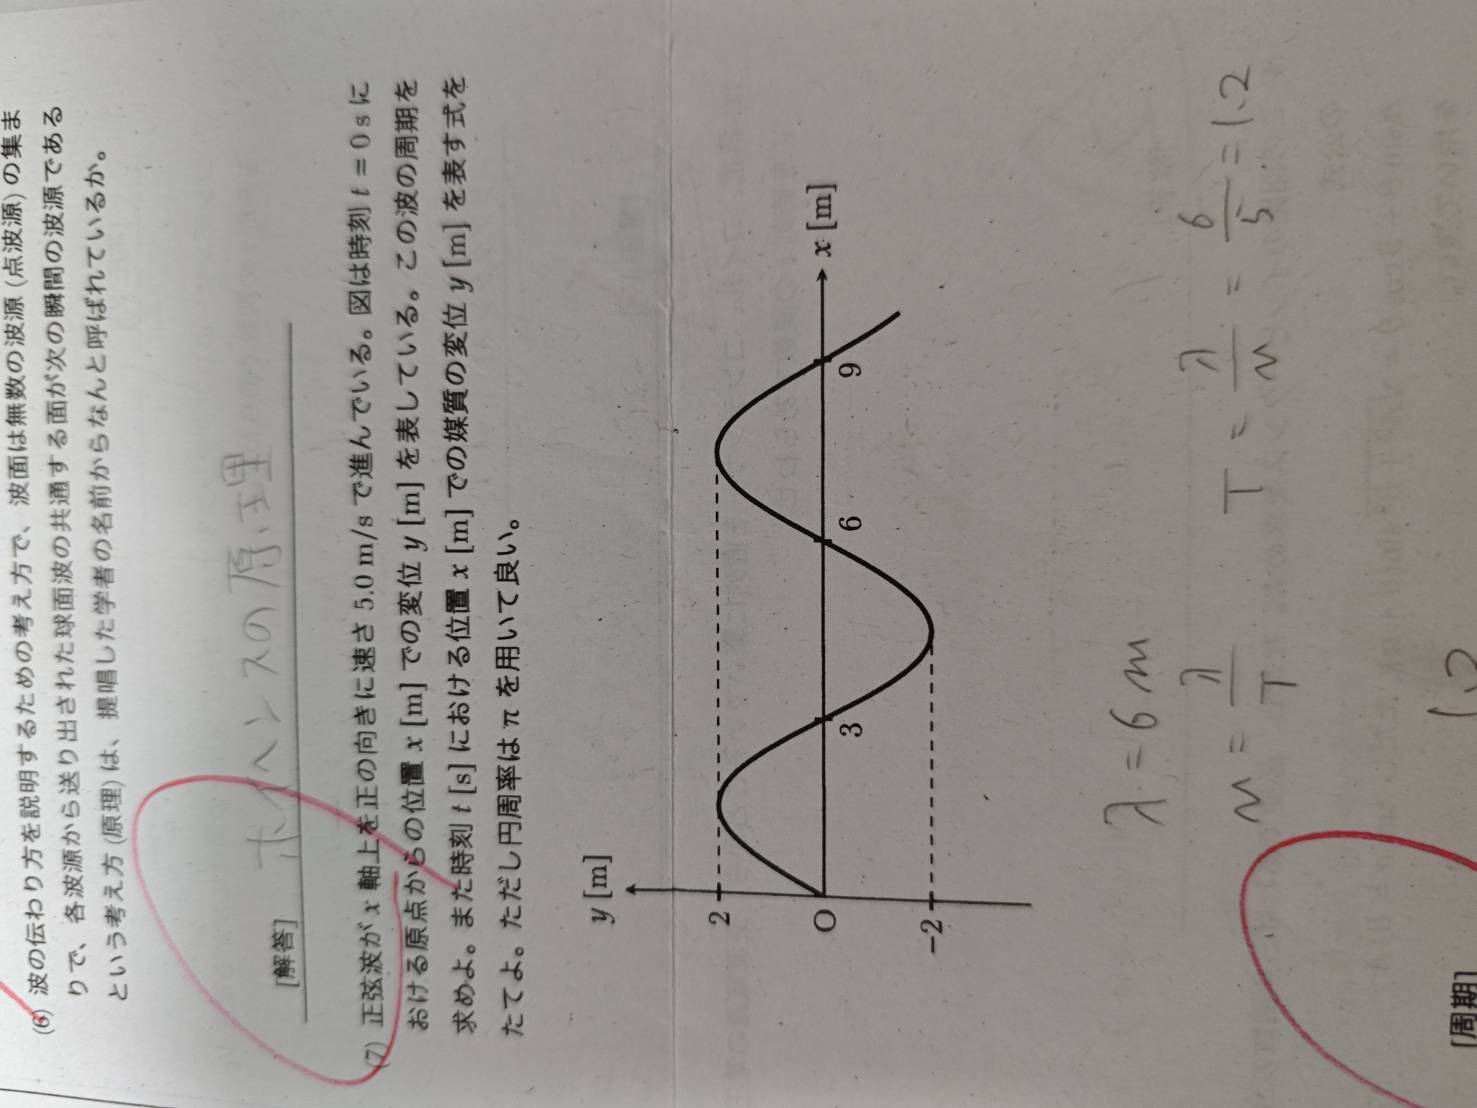 (6) 波の伝わり方を説明するための考え方で、波面は無数の波源 (点波源) の集ま
りで、各波源から送り出された球面波の共通する面が次の瞬間の波源である
という考え方 (原理) は、提唱した学者の名前からなんと呼ばれているか。
[解答] ホイヘンスの原理
(7) 正弦波が x 軸上を正の向きに速さ 5.0 m/s で進んでいる。図は時刻 t = 0 s に
おける原点からの位置 x [m] での変位 y [m] を表している。この波の周期を
求めよ。また時刻 t [s] における位置 x [m] での媒質の変位 y [m] を表す式を
たてよ。ただし円周率は π を用いて良い。
y [m]
2
O
3
6
9
x [m]
−2
λ = 6 m
v = λ/T T = λ/v = 6/5 = 1.2
[周期] 1.2